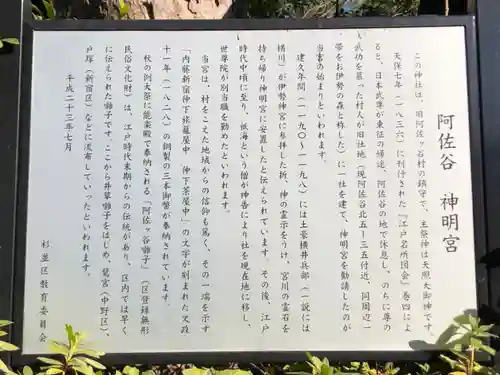 阿佐谷 神明宮
この神社は、旧阿佐ヶ谷村の鎮守で、主祭神は天照大御神です。
天保七年(一八三六)に刊行された『江戸名所図会』巻四によ
ると、日本武尊が東征の帰途、阿佐谷の地で休息し、のちに尊
の武功を慕った村人が旧社地(現阿佐谷北五―三五付近、同周辺一
帯をお伊勢の森と称した)に一社を建て、神明宮を勧請したのが
当宮の始まりといわれます。
建久年間(一一九〇~一一九八)には土豪横井兵部(一説には
横川)が伊勢神宮に参拝した折、神の霊示をうけ、宮川の霊石を
持ち帰り神明宮に安置したと伝えられています。その後、江戸
時代中頃に至り、祇海という僧が神告により社を現在地に移し、
世尊院が別当職を勤めたといわれます。
当宮は、村をこえた地域からの信仰も篤く、その一端を示す
「内藤新宿仲下旅籠屋中 仲下茶屋中」の文字が刻まれた文政
十一年(一八二八)の銅製の三本御幣が奉納されています。
秋の例大祭に能楽殿で奉納される「阿佐ヶ谷囃子」(区登録無形
民俗文化財)は、江戸時代末期からの伝統があり、区内では早く
に伝えられた囃子です。ここから井草囃子をはじめ、鷺宮(中野区)、
戸塚(新宿区)などに流布していったといわれます。
平成二十三年七月
杉並区教育委員会